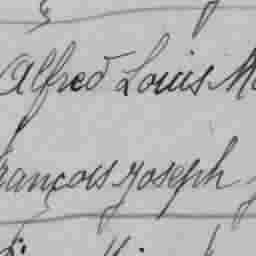 Alfred Louis M
rançois Joseph